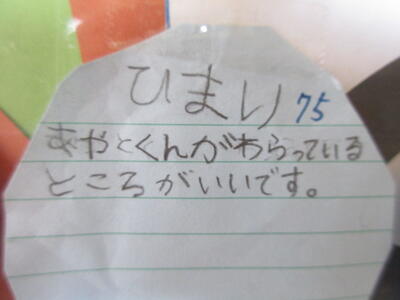 ひまり 75
あやとくんがわらっている
ところがいいです。